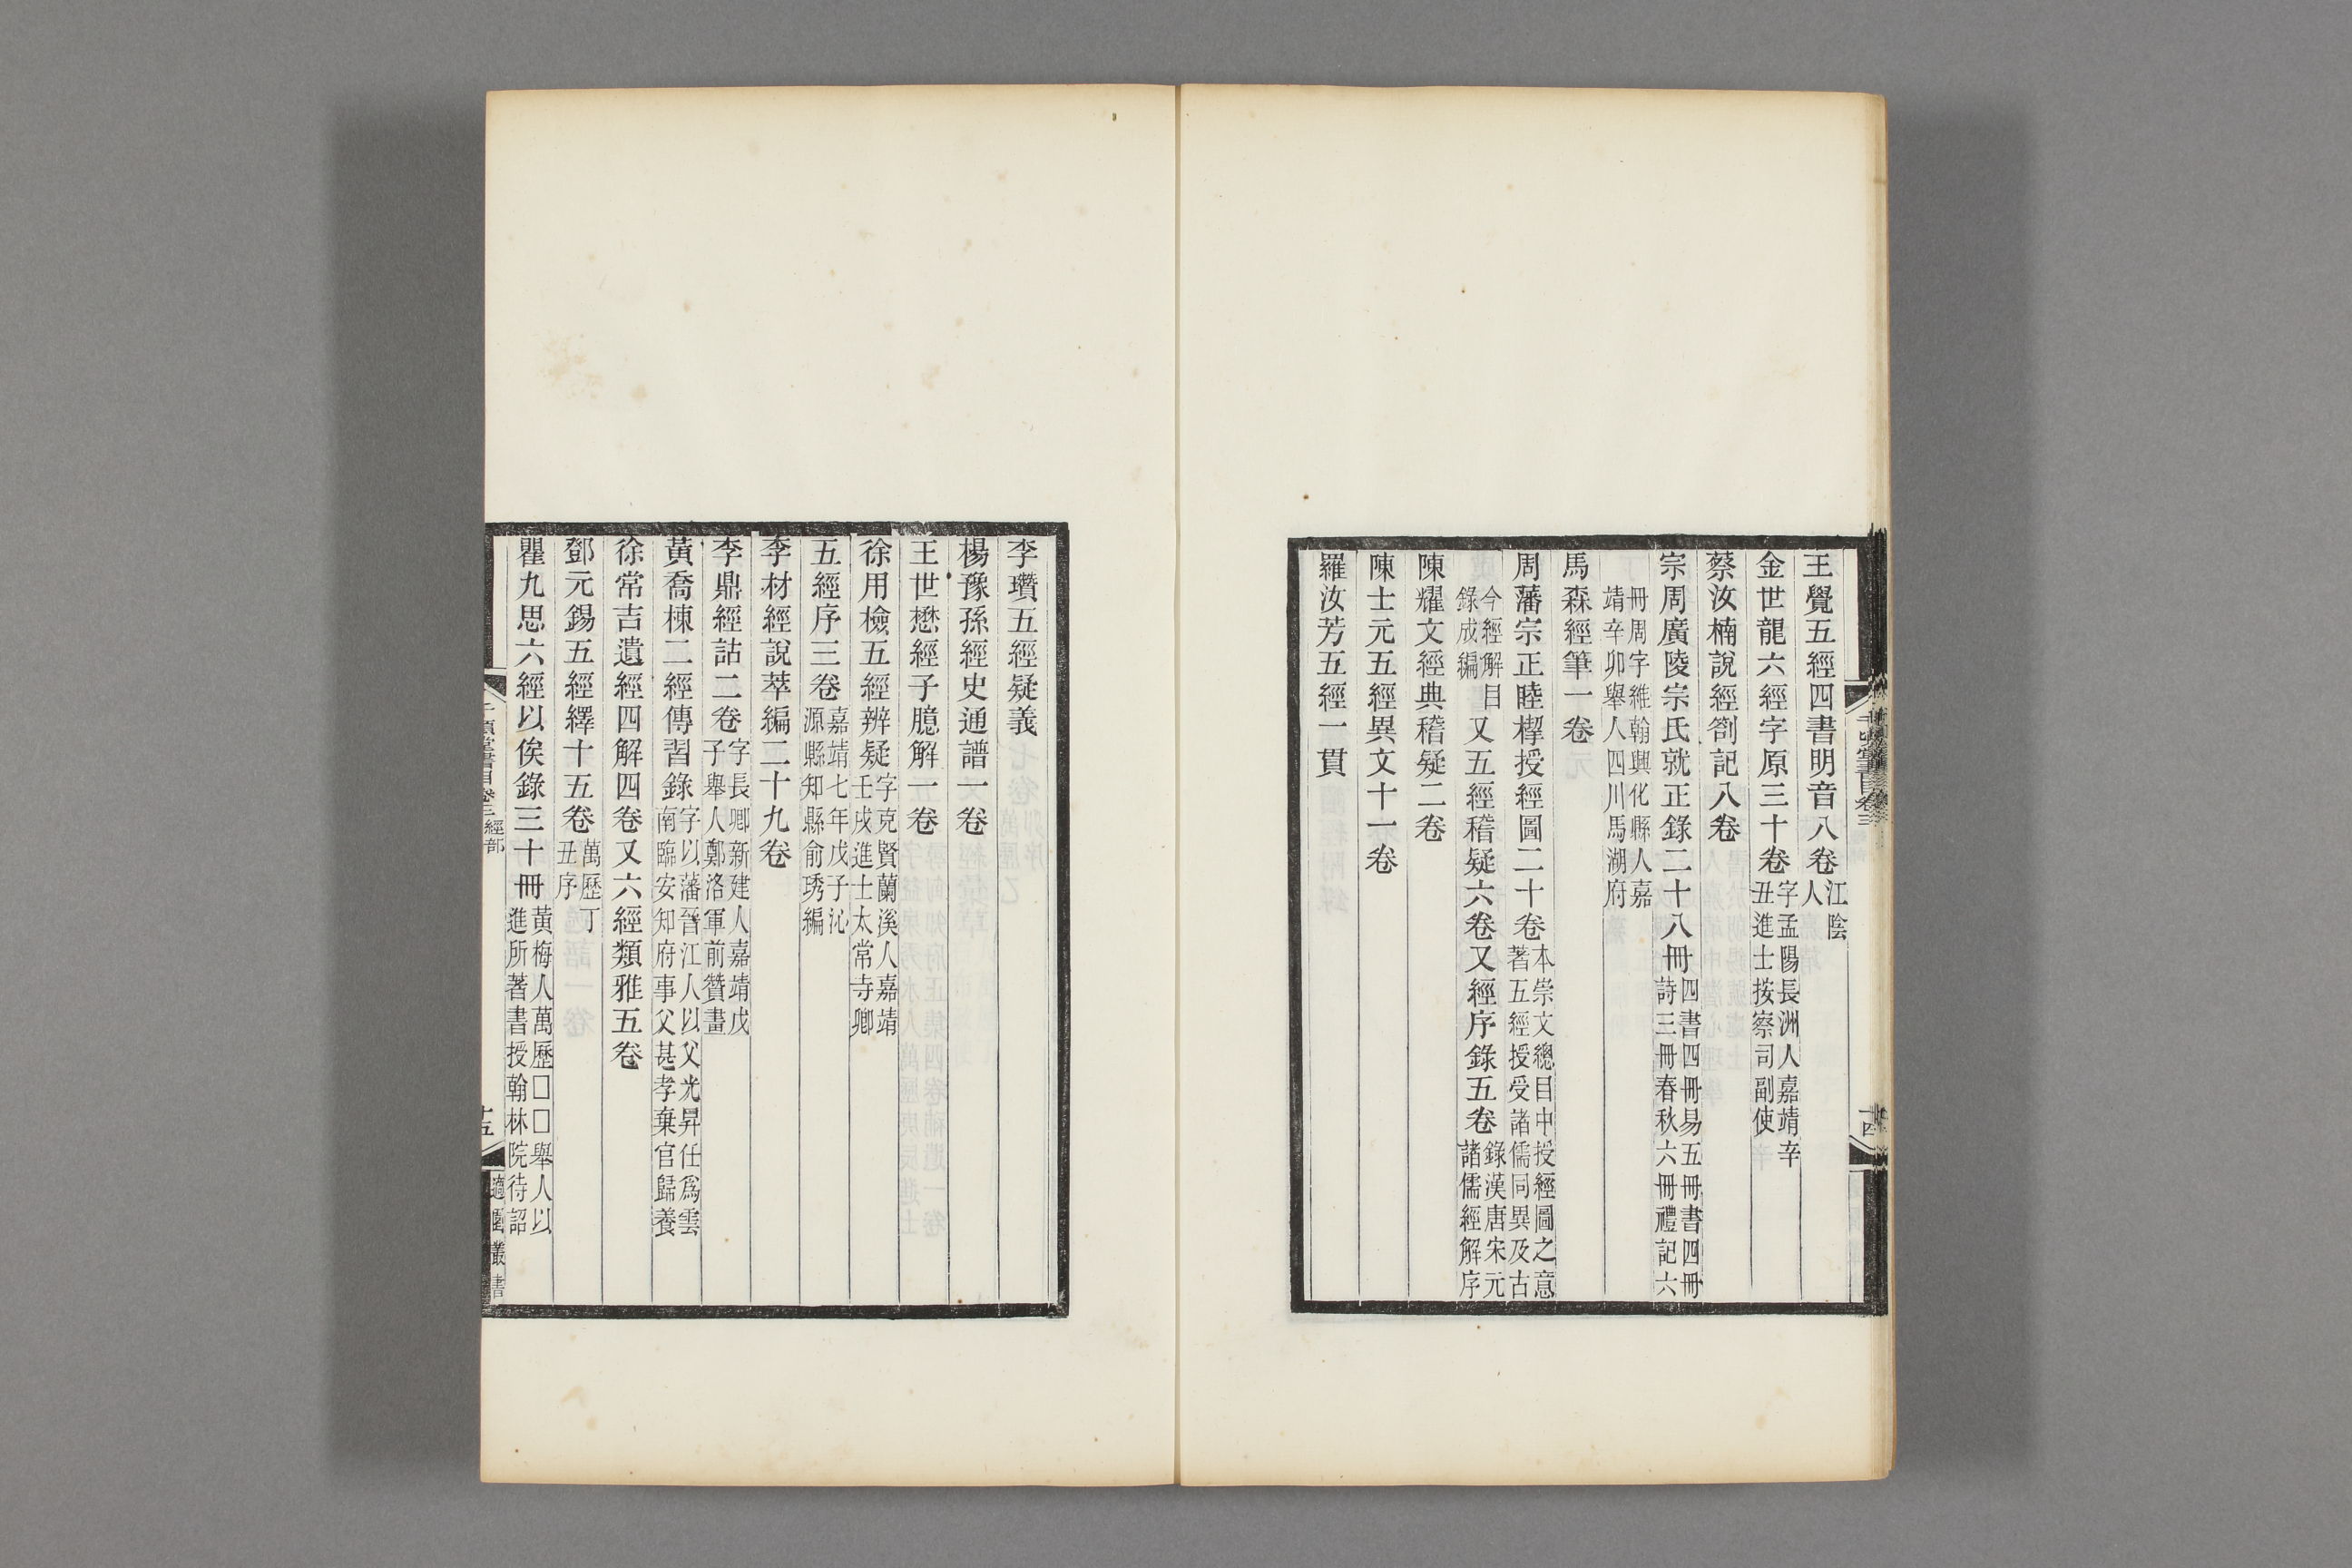 王覺五經四書明音八卷江陰人
金世龍六經字原三十卷字孟陽長洲人嘉靖辛丑進士按察司副使
蔡汝楠說經劄記八卷
宗周廣陵宗氏就正錄二十八冊四書四冊易五冊書四冊詩三冊春秋六冊禮記六
冊周字維翰興化縣人嘉靖辛卯舉人四川馬湖府
馬森經筆一卷
周藩宗正睦㮮授經圖二十卷本崇文總目中授經圖之意著五經授受諸儒同異及古
今經解目錄成編又五經稽疑六卷又經序錄五卷錄漢唐宋元諸儒經解序
陳耀文經典稽疑二卷
陳士元五經異文十一卷
羅汝芳五經一貫
千頃堂書目卷三
十四
李瓚五經疑義
楊豫孫經史通譜一卷
王世懋經子臆解一卷
徐用檢五經辨疑字克賢蘭溪人嘉靖壬戌進士太常寺卿
五經序三卷嘉靖七年戊子沁源縣知縣俞琇編
李材經說萃編二十九卷
李鼎經詁二卷字長卿新建人嘉靖戊子舉人鄭洛軍前贊畫
黃喬棟二經傳習錄字以藩晉江人以父光昇任爲雲南臨安知府事父甚孝棄官歸養
徐常吉遺經四解四卷又六經類雅五卷
鄧元錫五經繹十五卷萬歷丁丑序
瞿九思六經以俟錄三十冊黃梅人萬歷□□舉人以進所著書授翰林院待詔
千頃堂書目卷三經部
十五
適園叢書